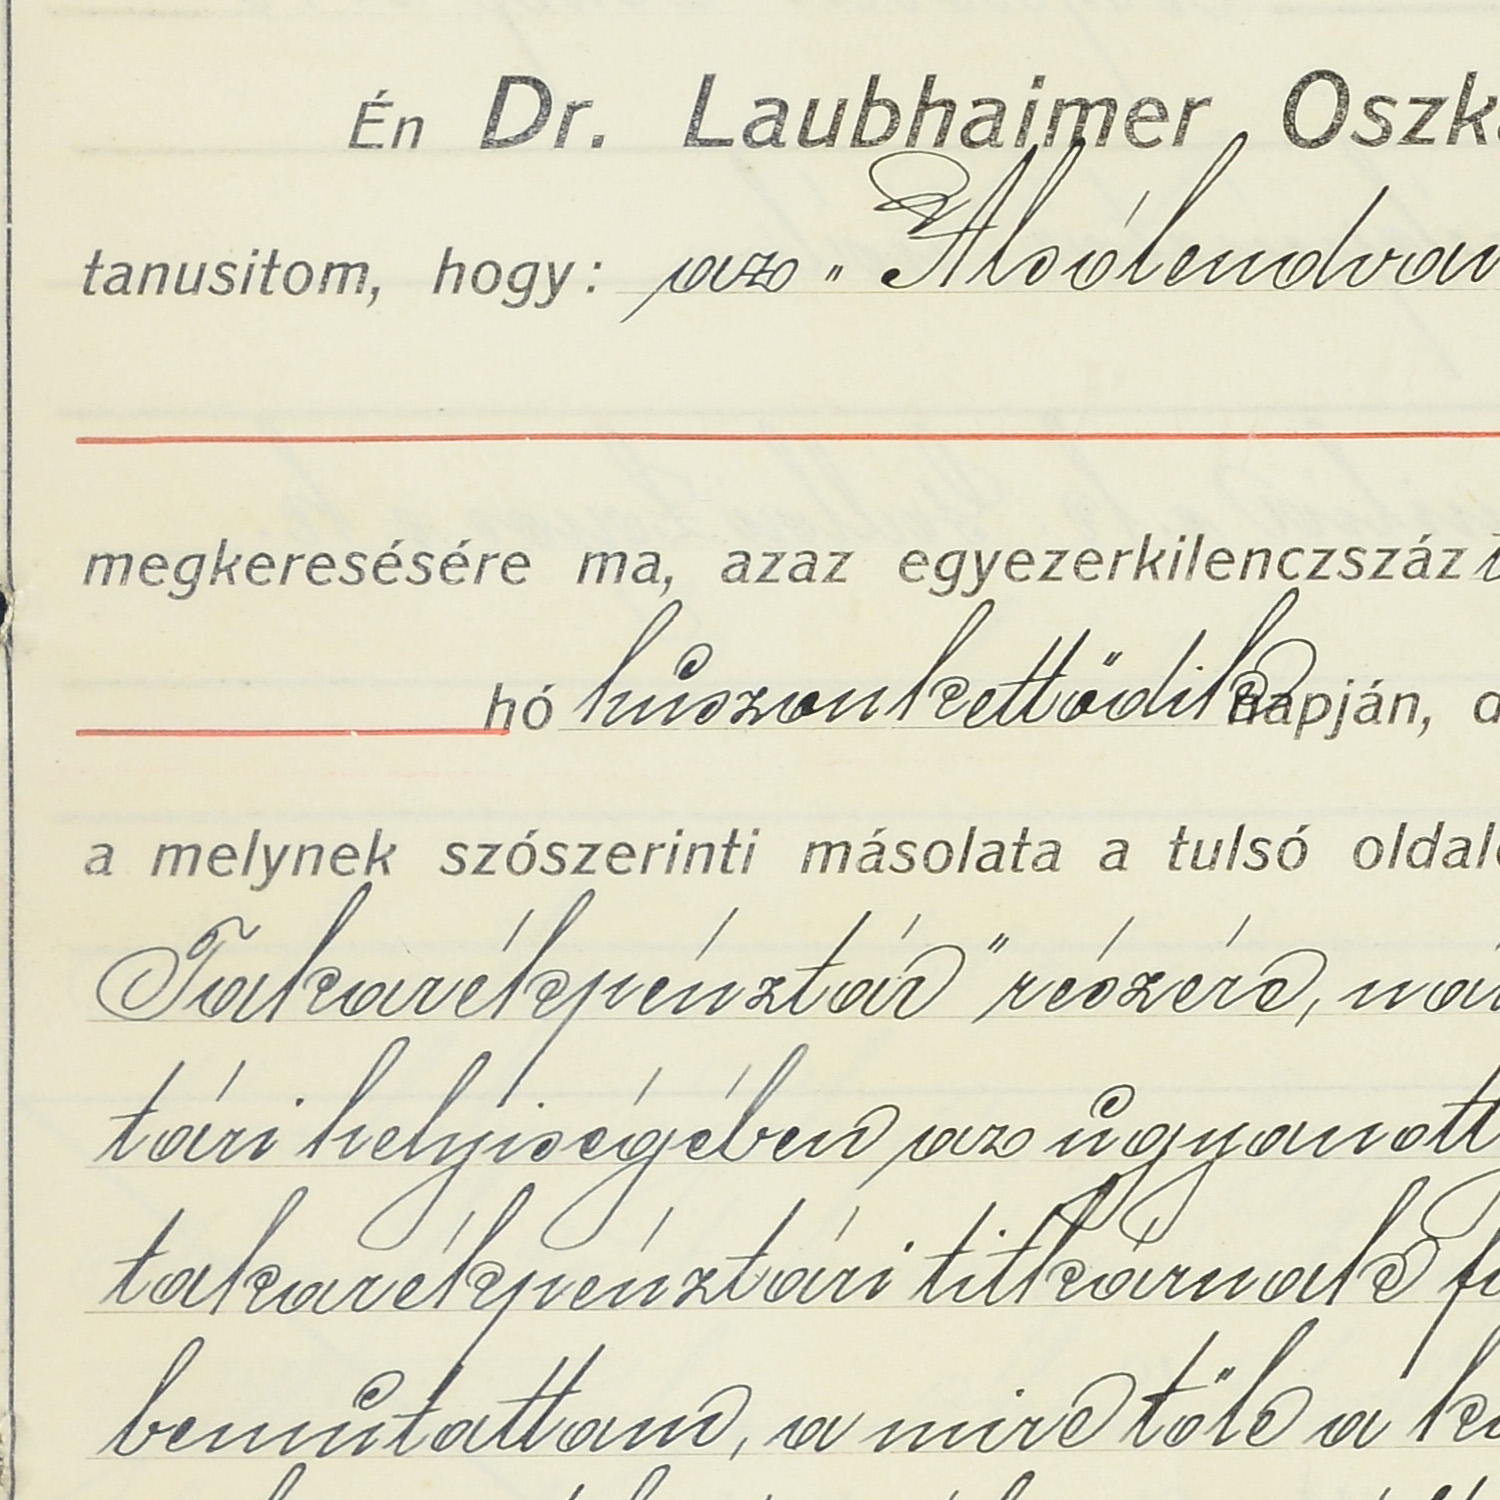 Én Dr. Laubhaimer Oszka
tanusitom, hogy: az „Alsólendvai
megkeresésére ma, azaz egyezerkilenczszáz
hó huszonkettődik napján, d
a melynek szószerinti másolata a tulsó oldalo
Takarékpénztár" részére, 
tári helyiségében az ugyanott
takarékpénztári titkárnak
bemutattam, a mire tőle a